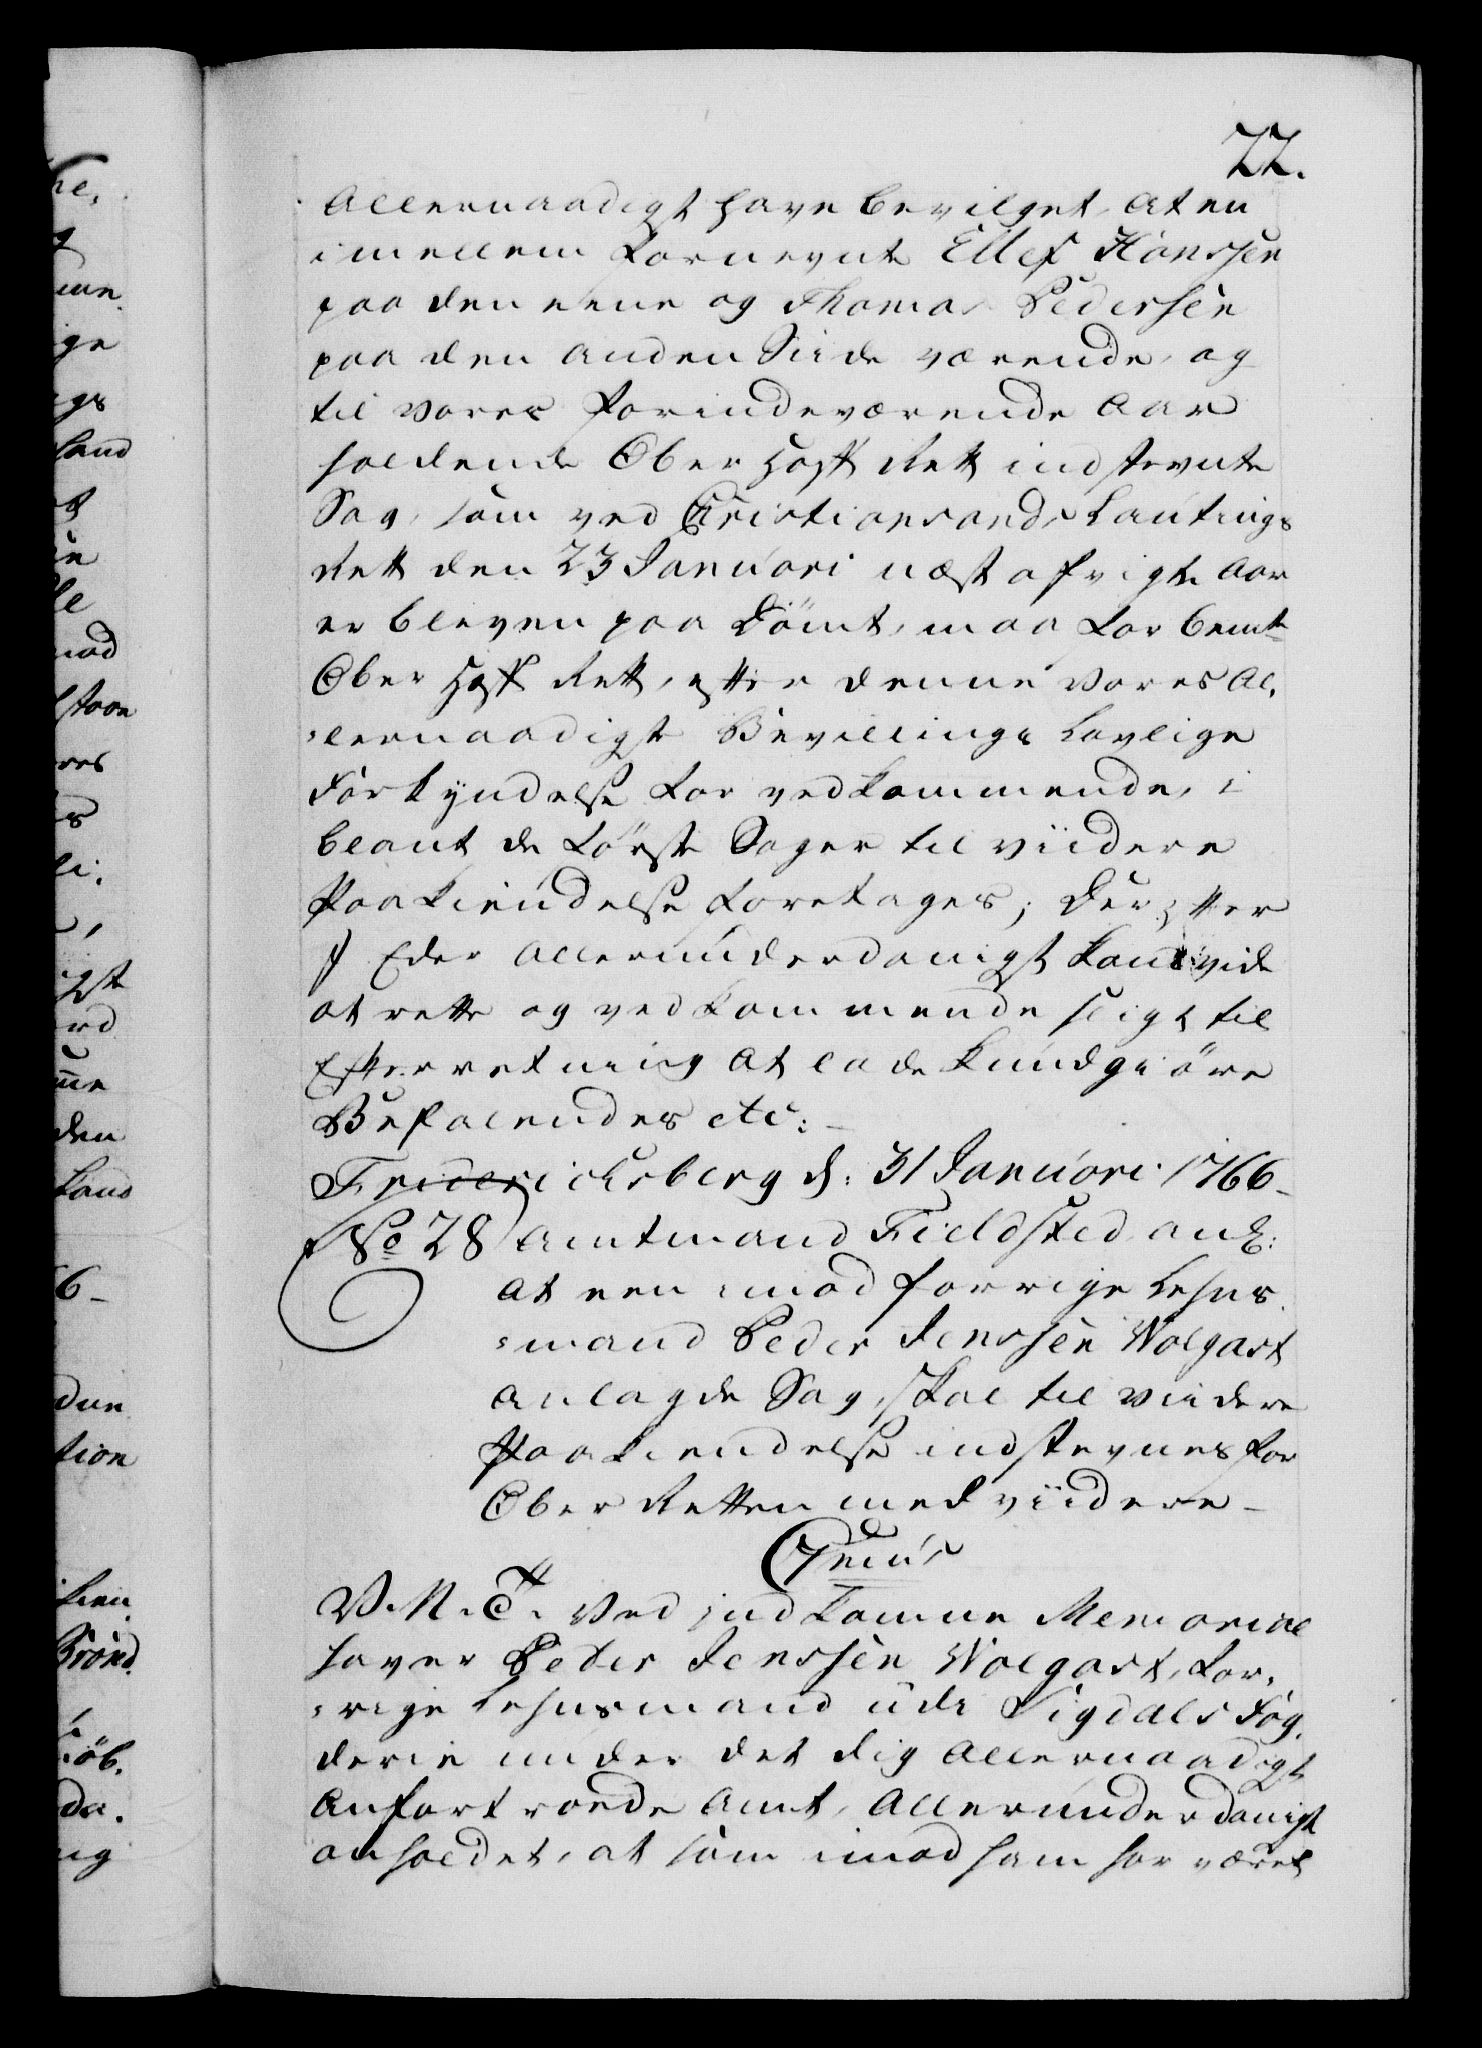 22.
Allernaadigst have bevilget, at en
imellem fornevnte Ellef Hanssen
paa den eene og Thomas Pedersen
paa den anden Siide værende, og
til vores forindeværende Aar
holdende Ober Hoff Rett indstevnte
Sag, som ved Christiansands Lautings
Rett den 23 Januari næst afvigte Aar
er bleven paa Dömt, maa for bemte
Ober Hoff Rett, efter denne Vores Al,
lernaadigste Bevillings Lovlige
Forkyndelse for vedkommende, i
blant de förste Sager til viidere
Paakiendelse foretages; Derefter
I Eder Allerunderdanigst kand vide
at rette og vedkommende sligt til
Efterretning at lade kundgiöre
Befalendes etc:
Friderichsberg d: 31 Januari 1766
No 28 Amtmand Fieldsted anl:
at een imod forrige Lehns
mand Peder Jenssen Wolgast
anlagde Sag, skal til viidere
Paakiendelse indstevnes for
Ober Retten med viidere
Genus
V. M. G. T. Ved indkomne Memorial
haver Peder Jenssen Wolgast, for,
rige Lehnsmand udi Sigdals Fog,
derie under det dig Allernaadigst
Anfortroede Amt, Allerunderdanigst
anholdet, at som imod ham har været